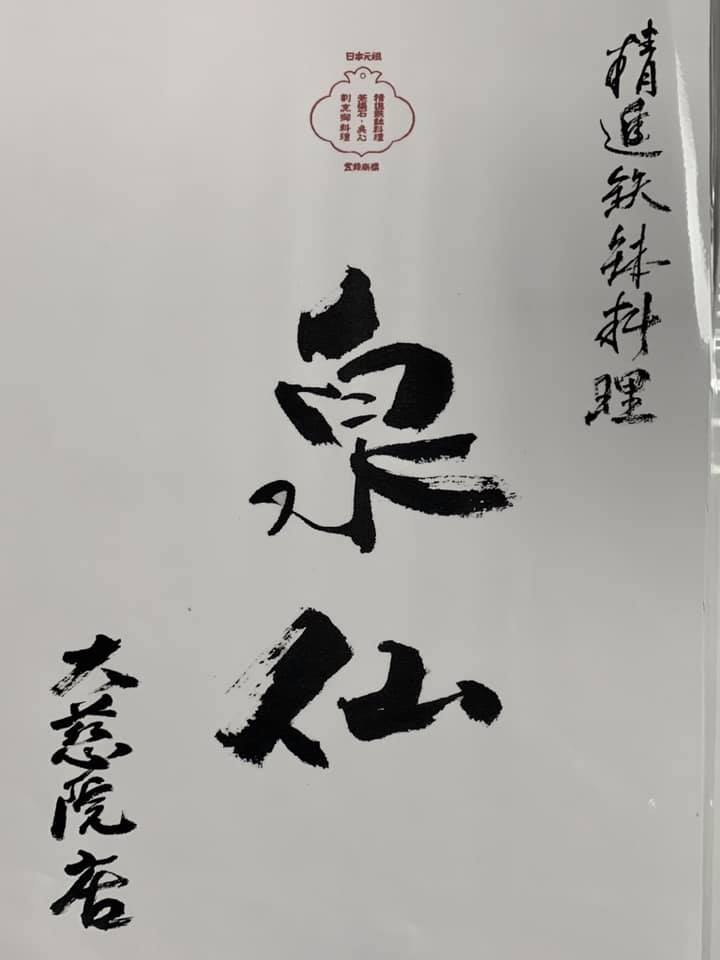 精進鉄鉢料理
日本元祖
精進鉄鉢料理
茶懐石・点心
割烹御料理
登録商標
泉仙
大慈院店